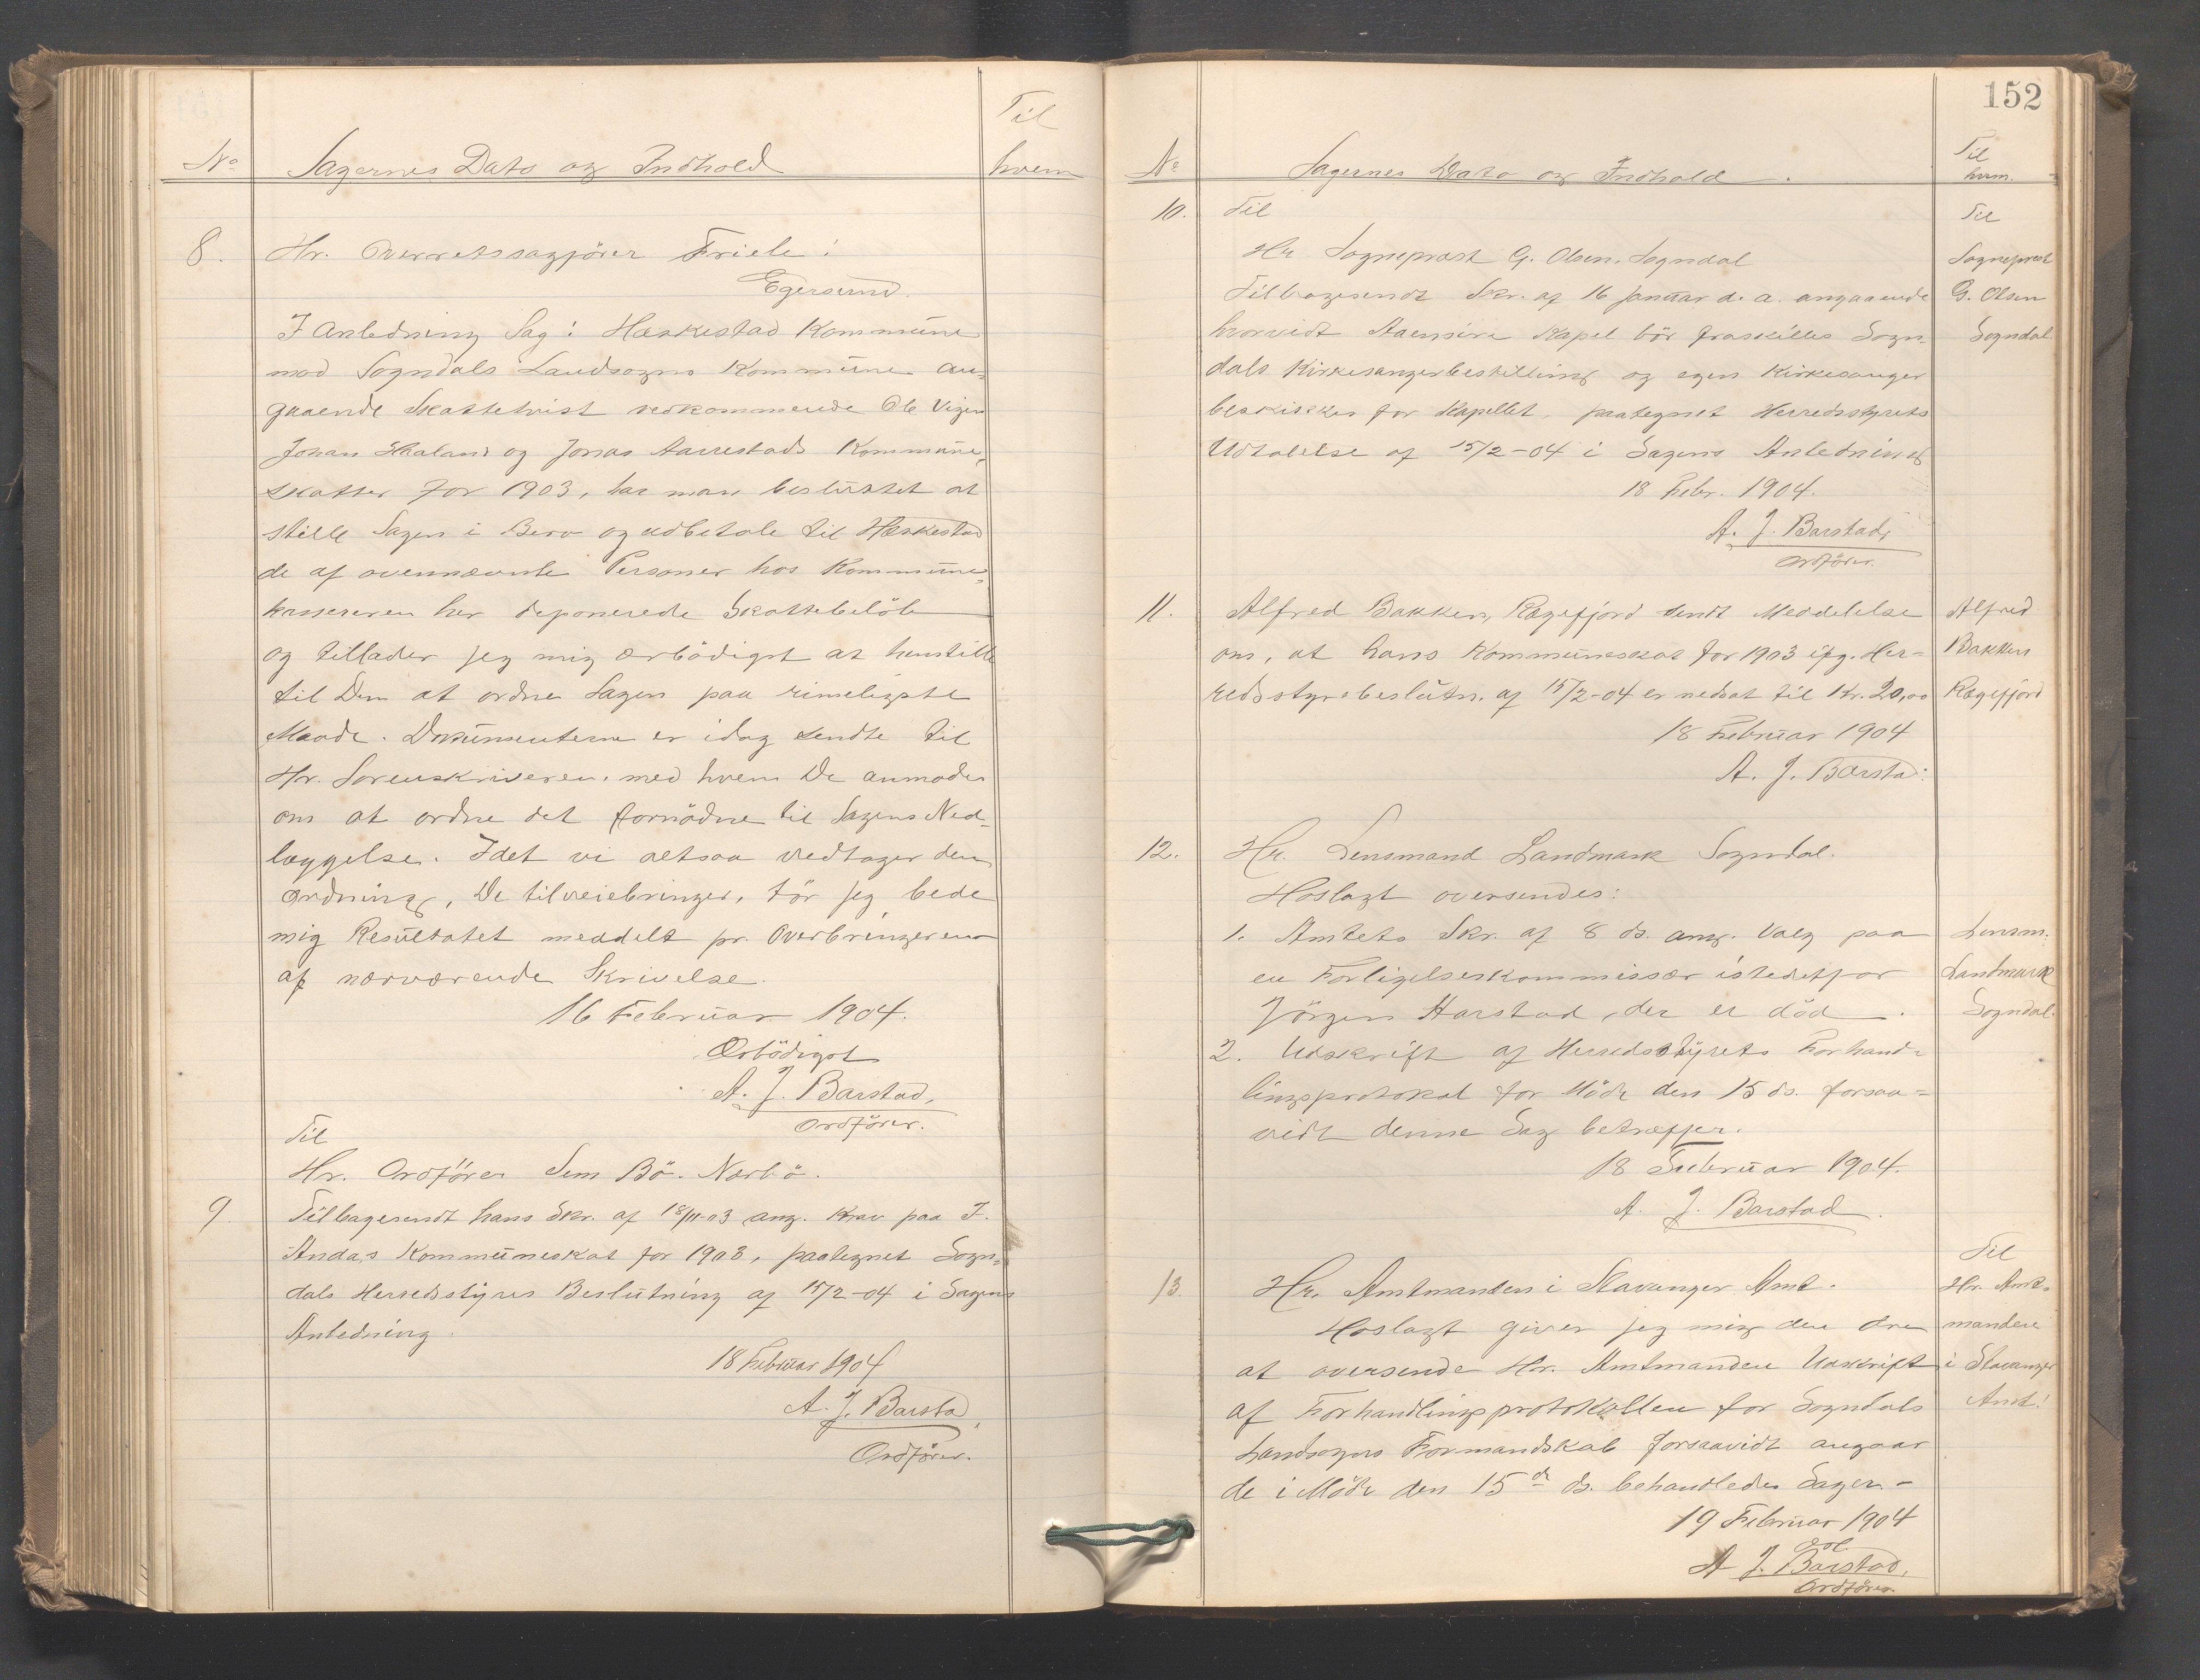 Til
No Sagernes Dato og Indhold hvem
8. Hr. Overretssagförer Friele!
Egersund.
I Anledning Sag: Heskestad Kommune
mod Sogndals Landsogns Kommune an-
gaaende Skattetvist vedkommende Ole Vigen
Johan Haaland og Jonas Aarrestads Kommune-
skatter for 1903, har man besluttet at
stille Sagen i Bero og udbetale til Heskestad
de af ovennævnte Personer hos Kommune-
kassereren her deponerede Skattebelöb
og tillader jeg mig ærbödigst at henstille
til Dem at ordne Sagen paa rimeligste
Maade. Dokumenterne er idag sendte til
Hr. Sorenskriveren, med hvem De anmodes
om at ordne det fornödne til Sagens Ned-
læggelse. Idet vi altsaa vedtager den
Ordning, De tilveiebringer, tör jeg bede
mig Resultatet meddelt pr. Overbringeren
af nærværende Skrivelse.
16 Februar 1904.
Ærbödigst
A. J. Barstad,
Ordförer.
Til
Hr. Ordförer Sem Bö. Nærbö.
9 Tilbagesendt hans Skr. af 18/11-03 ang. Krav paa T.
Andas Kommuneskat for 1903, paategnet Sogn-
dals Herredsstyres Beslutning af 15/2-04 i Sagens
Anledning.
18 Februar 1904
A. J. Barstad,
Ordförer.
152
No Sagernes Dato og Indhold. Til hvem.
10. Til
Hr Sogneprest G. Olsen, Sogndal
Tilbagesendt Skr. af 16 januar d. a. angaaende
hvorvidt Aaensire Kapel bör fraskilles Sogn-
dals Kirkesangerbestilling og egen Kirkesanger
beskikkes for Kapellet, paategnet Herredsstyrets
Udtalelse af 15/2-04 i Sagens Anledning
18 Febr. 1904.
A. J. Barstad,
Ordförer.
Til
Sogneprest
G. Olsen
Sogndal
11. Alfred Bakken, Rægefjord sendt Meddelelse
om, at hans Kommuneskat for 1903 ifg. Her-
redsstyrebeslutn. af 15/2-04 er nedsat til Kr. 20,00
18 Februar 1904
A. J. Barstad:
Alfred
Bakken
Rægefjord
12. Hr. Lensmand Landmark Sogndal.
Hoslagt oversendes:
1. Amtets Skr. af 8 ds. ang. Valg paa
en Forligelseskommissær istedetfor
Jörgen Harstad, der er död.
2. Udskrift af Herredsstyrets Forhand-
lingsprotokol for Möde den 15 ds. forsaa-
vidt denne Sag betræffer.
18 Februar 1904.
A. J. Barstad.
Lensm.
Landmark
Sogndal.
13. Hr. Amtmanden i Stavanger Amt.
Hoslagt giver jeg mig den Ære
at oversende Hr. Amtmanden Udskrift
af Forhandlingsprotokollen for Sogndals
Landsogns Formandskab forsaavidt angaar
de i Möde den 15de ds. behandlede Sager.-
19 Februar 1904
A J. Barstad,
Ordförer.
Til
Hr. Amt-
manden
i Stavanger
Amt!